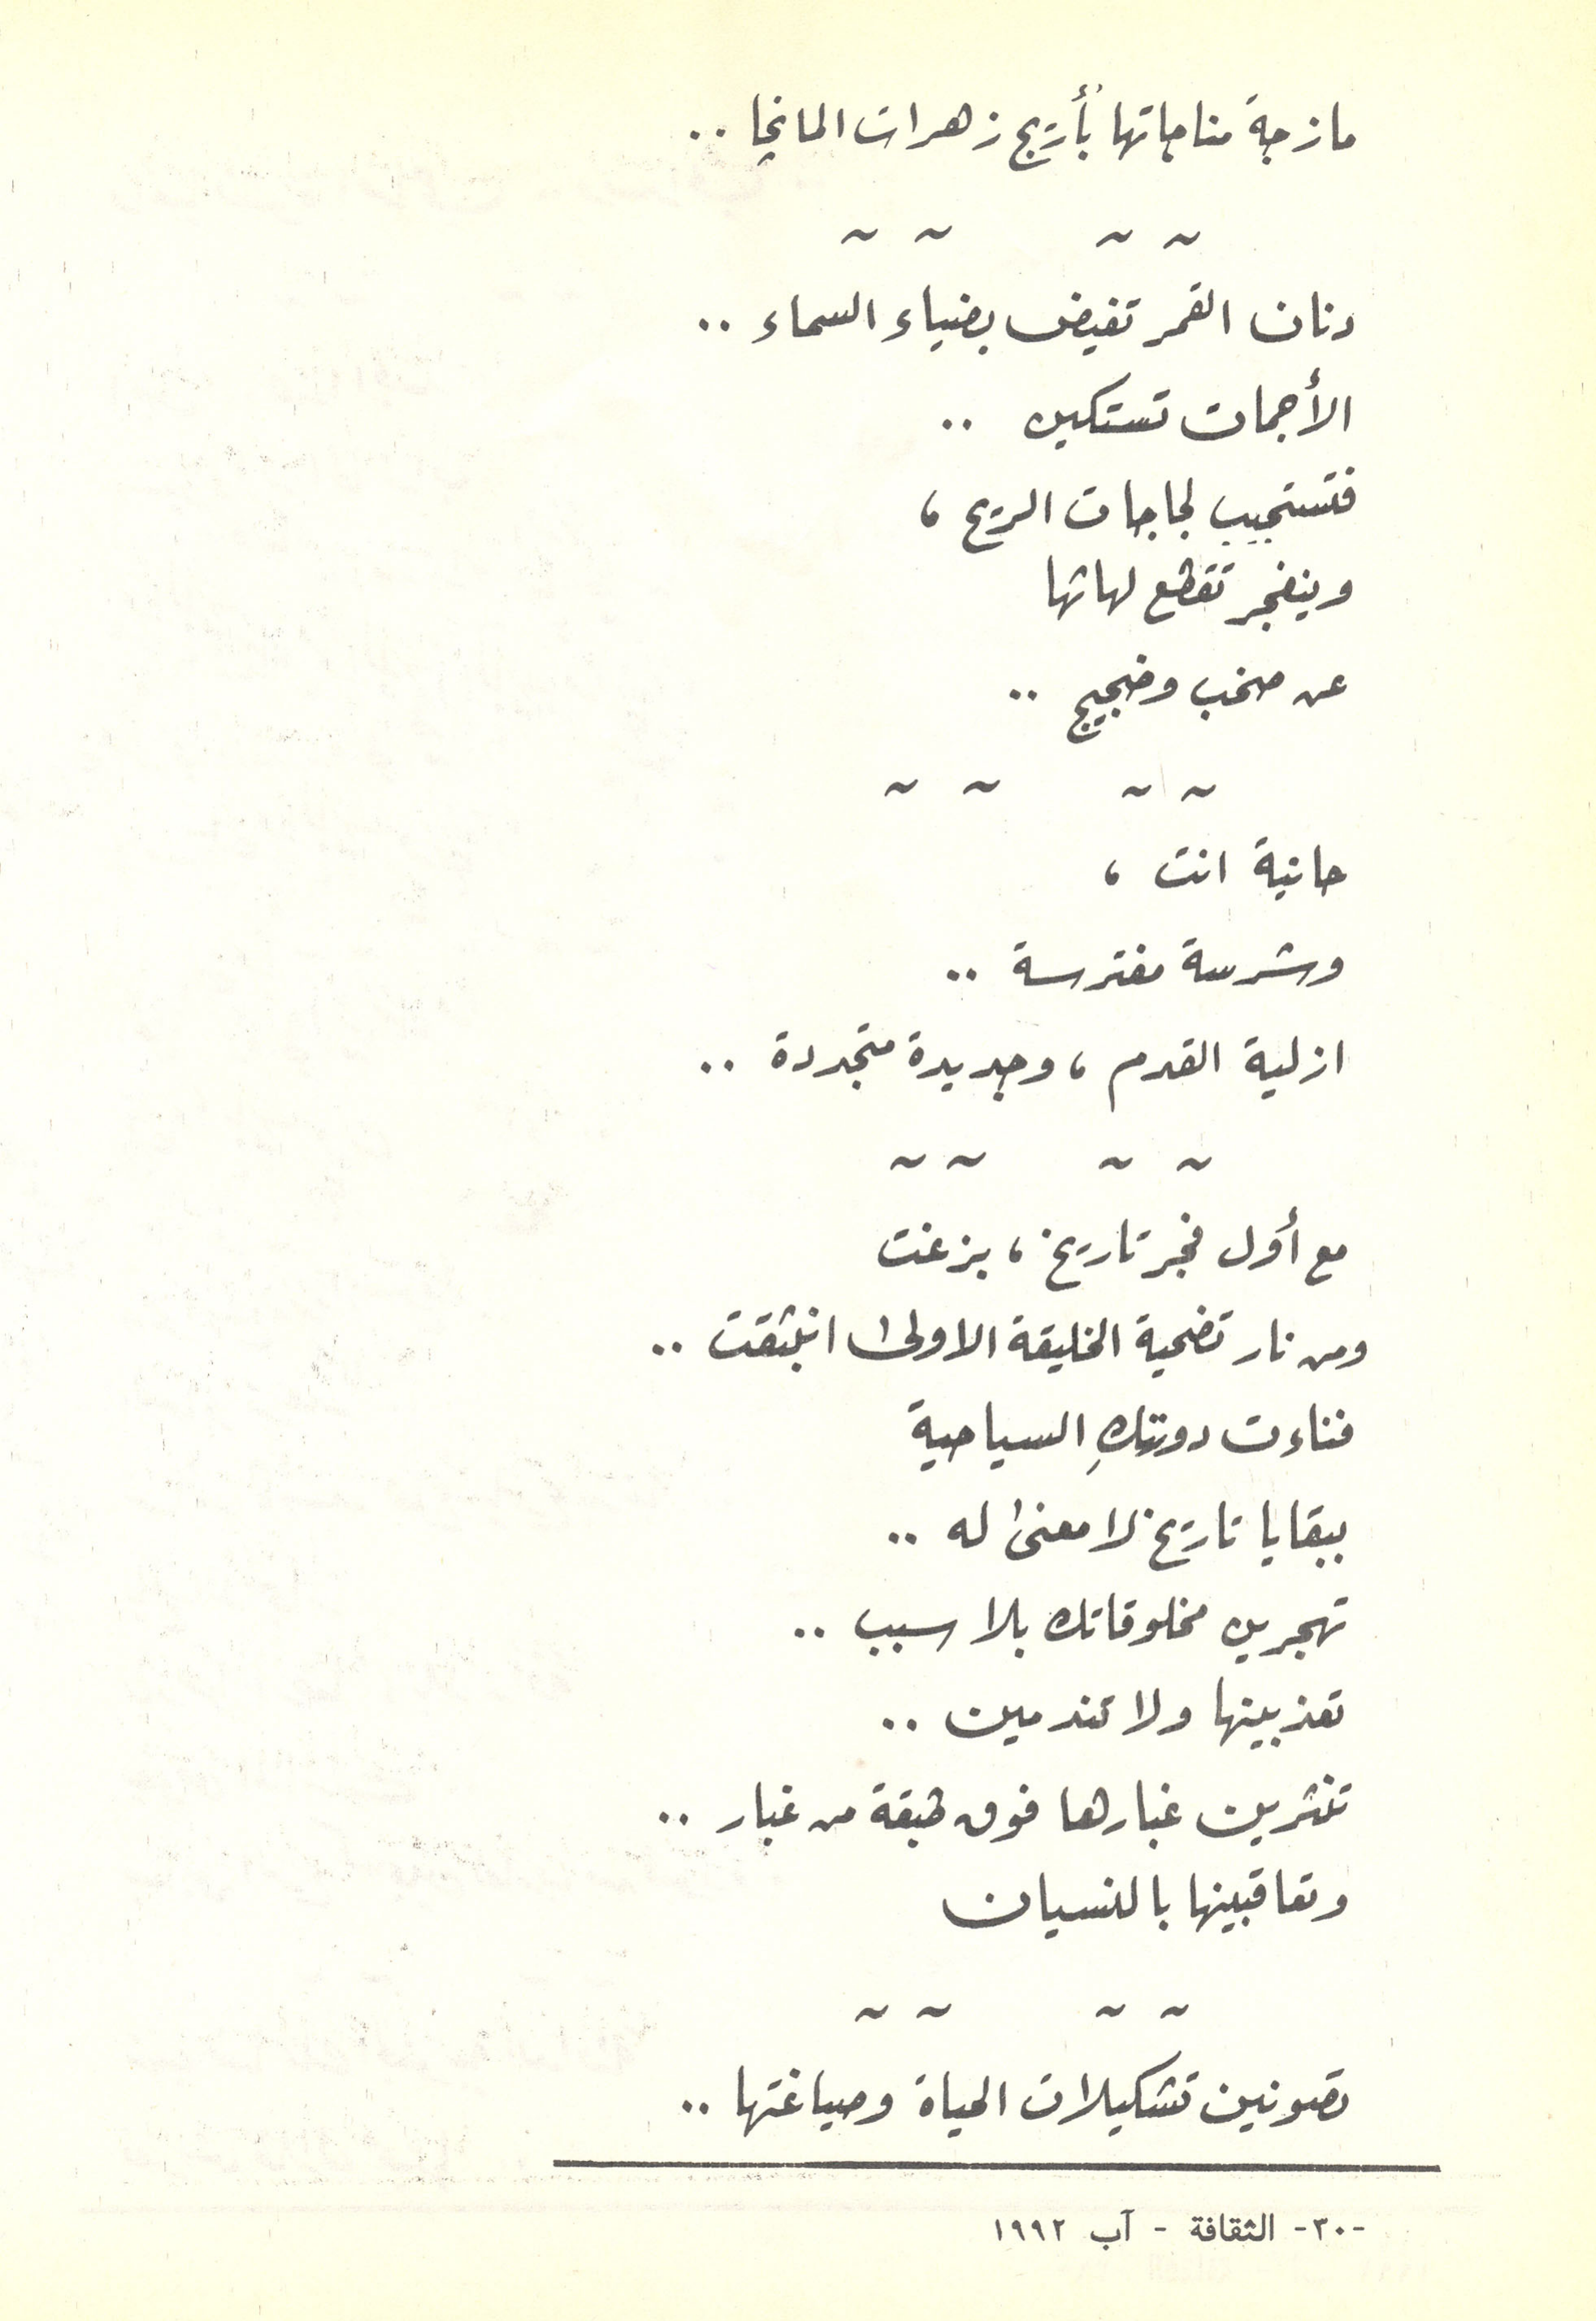 مازجة مناجاتها بأريج زهرات المانجا ..
~ ~ ~ ~
دنان القمر تفيض بضياء السماء ..
الأجمات تستكين ..
فتستجيب لجاجات الريح ،
وينفجر تقطع لهاثها
عن صخب وضجيج ..
~ ~ ~ ~
حانية انت ،
وشرسة مفترسة ..
ازلية القدم ، وجديدة متجددة ..
~ ~ ~ ~
مع أول فجر تاريخ ، بزغت
ومن نار تضحية الخليقة الاولى انبثقت ..
فناءت دورتكِ السياحية
ببقايا تاريخ لا معنى له ..
تهجرين مخلوقاتك بلا سبب ..
تعذبينها ولا تندمين ..
تنثرين غبارها فوق طبقة من غبار ..
وتعاقبينها بالنسيان
~ ~ ~ ~
تصونين تشكيلات الحياة وصياغتها ..
-٣٠- الثقافة - آب ١٩٩٢